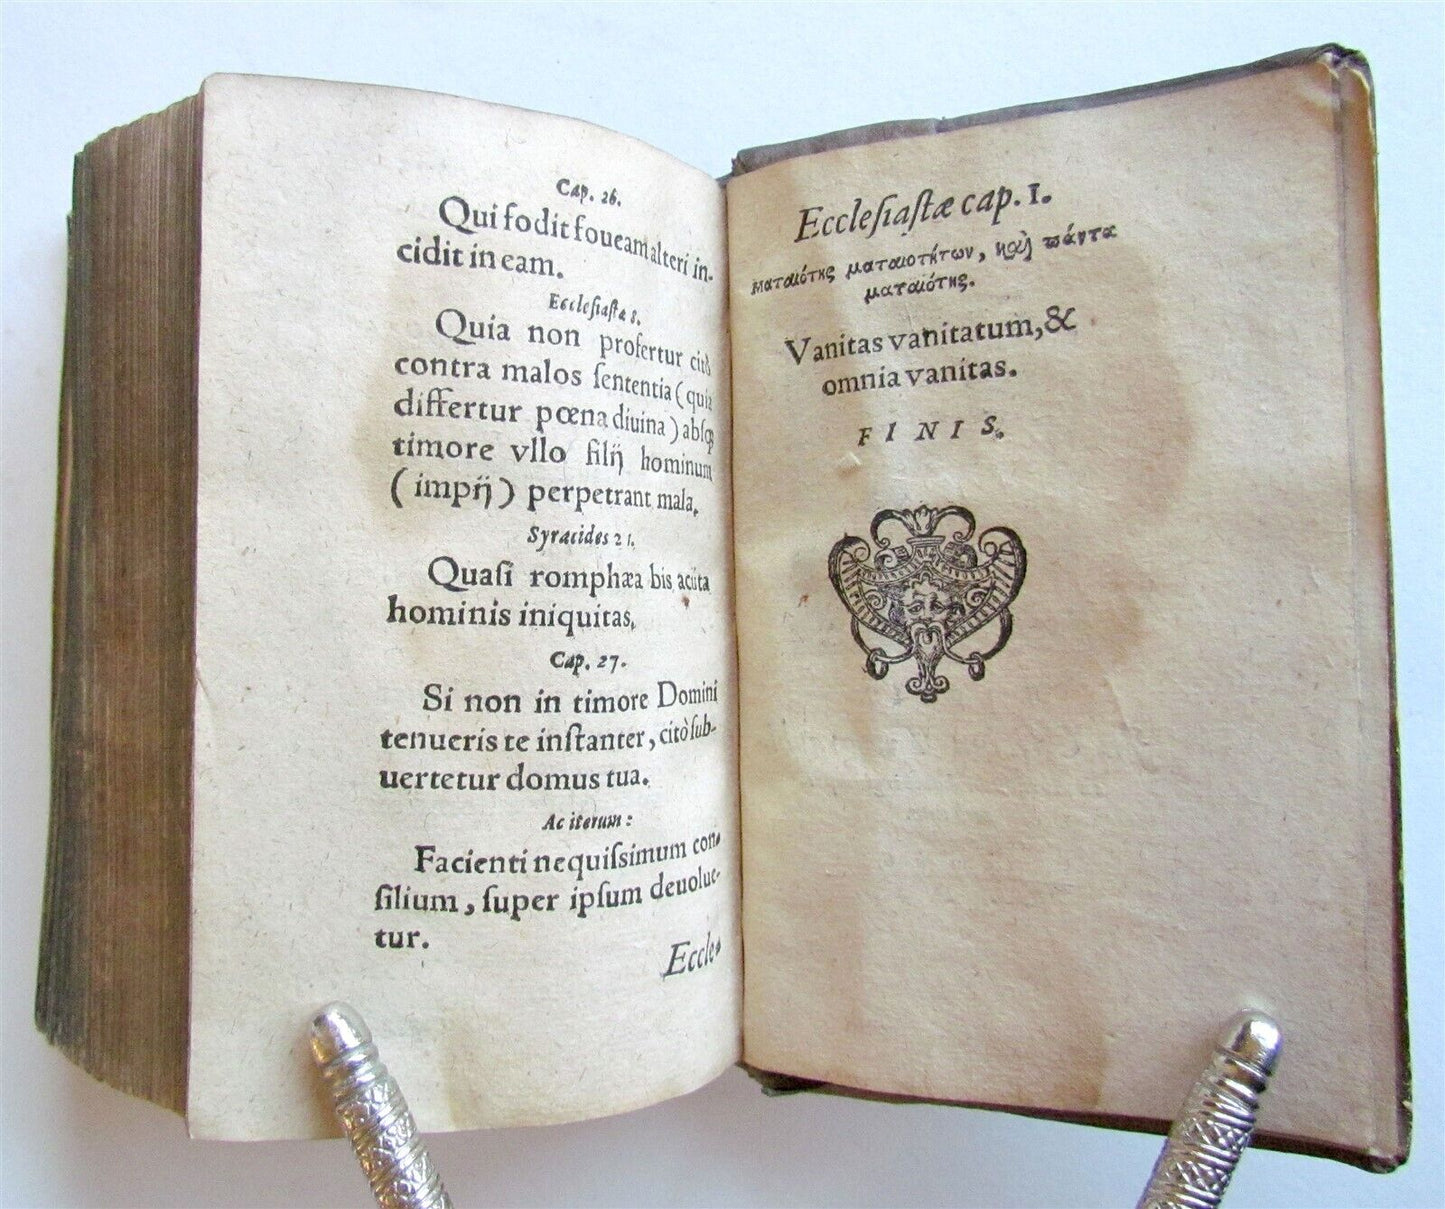 Cap. 26.
Qui fodit foueam alteri in-
cidit in eam.
Ecclesiastæ 8.
Quia non profertur citò
contra malos ſententia (quia
differtur pœna diuina) abſq;
timore vllo filij hominum
(impij) perpetrant mala.
Syracides 21.
Quaſi romphæa bis acuta
hominis iniquitas.
Cap. 27.
Si non in timore Domini
tenueris te inſtanter, citò ſub-
uertetur domus tua.
Ac iterum:
Facienti nequiſsimum con-
ſilium, ſuper ipſum deuolue-
tur.
Eccle-
Eccleſiaſtæ cap. 1.
ματαιότης ματαιοτήτων, καὶ πάντα
ματαιότης.
Vanitas vanitatum, &
omnia vanitas.
FINIS.